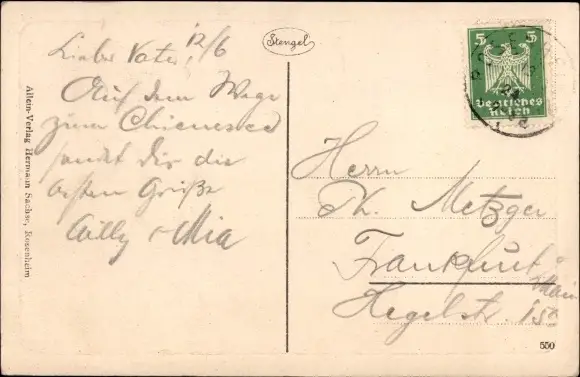 Lieber Vater! 12/6
Auf dem Wege
zum Chiemsee
sendet Dir die
besten Grüße
Willy + Mia
Stengel
5 5
Deutsches
Reich
Herrn
Ph. Metzger
Frankfurt
Main
Hegelstr. 15
Allein-Verlag Hermann Sachse, Rosenheim
550